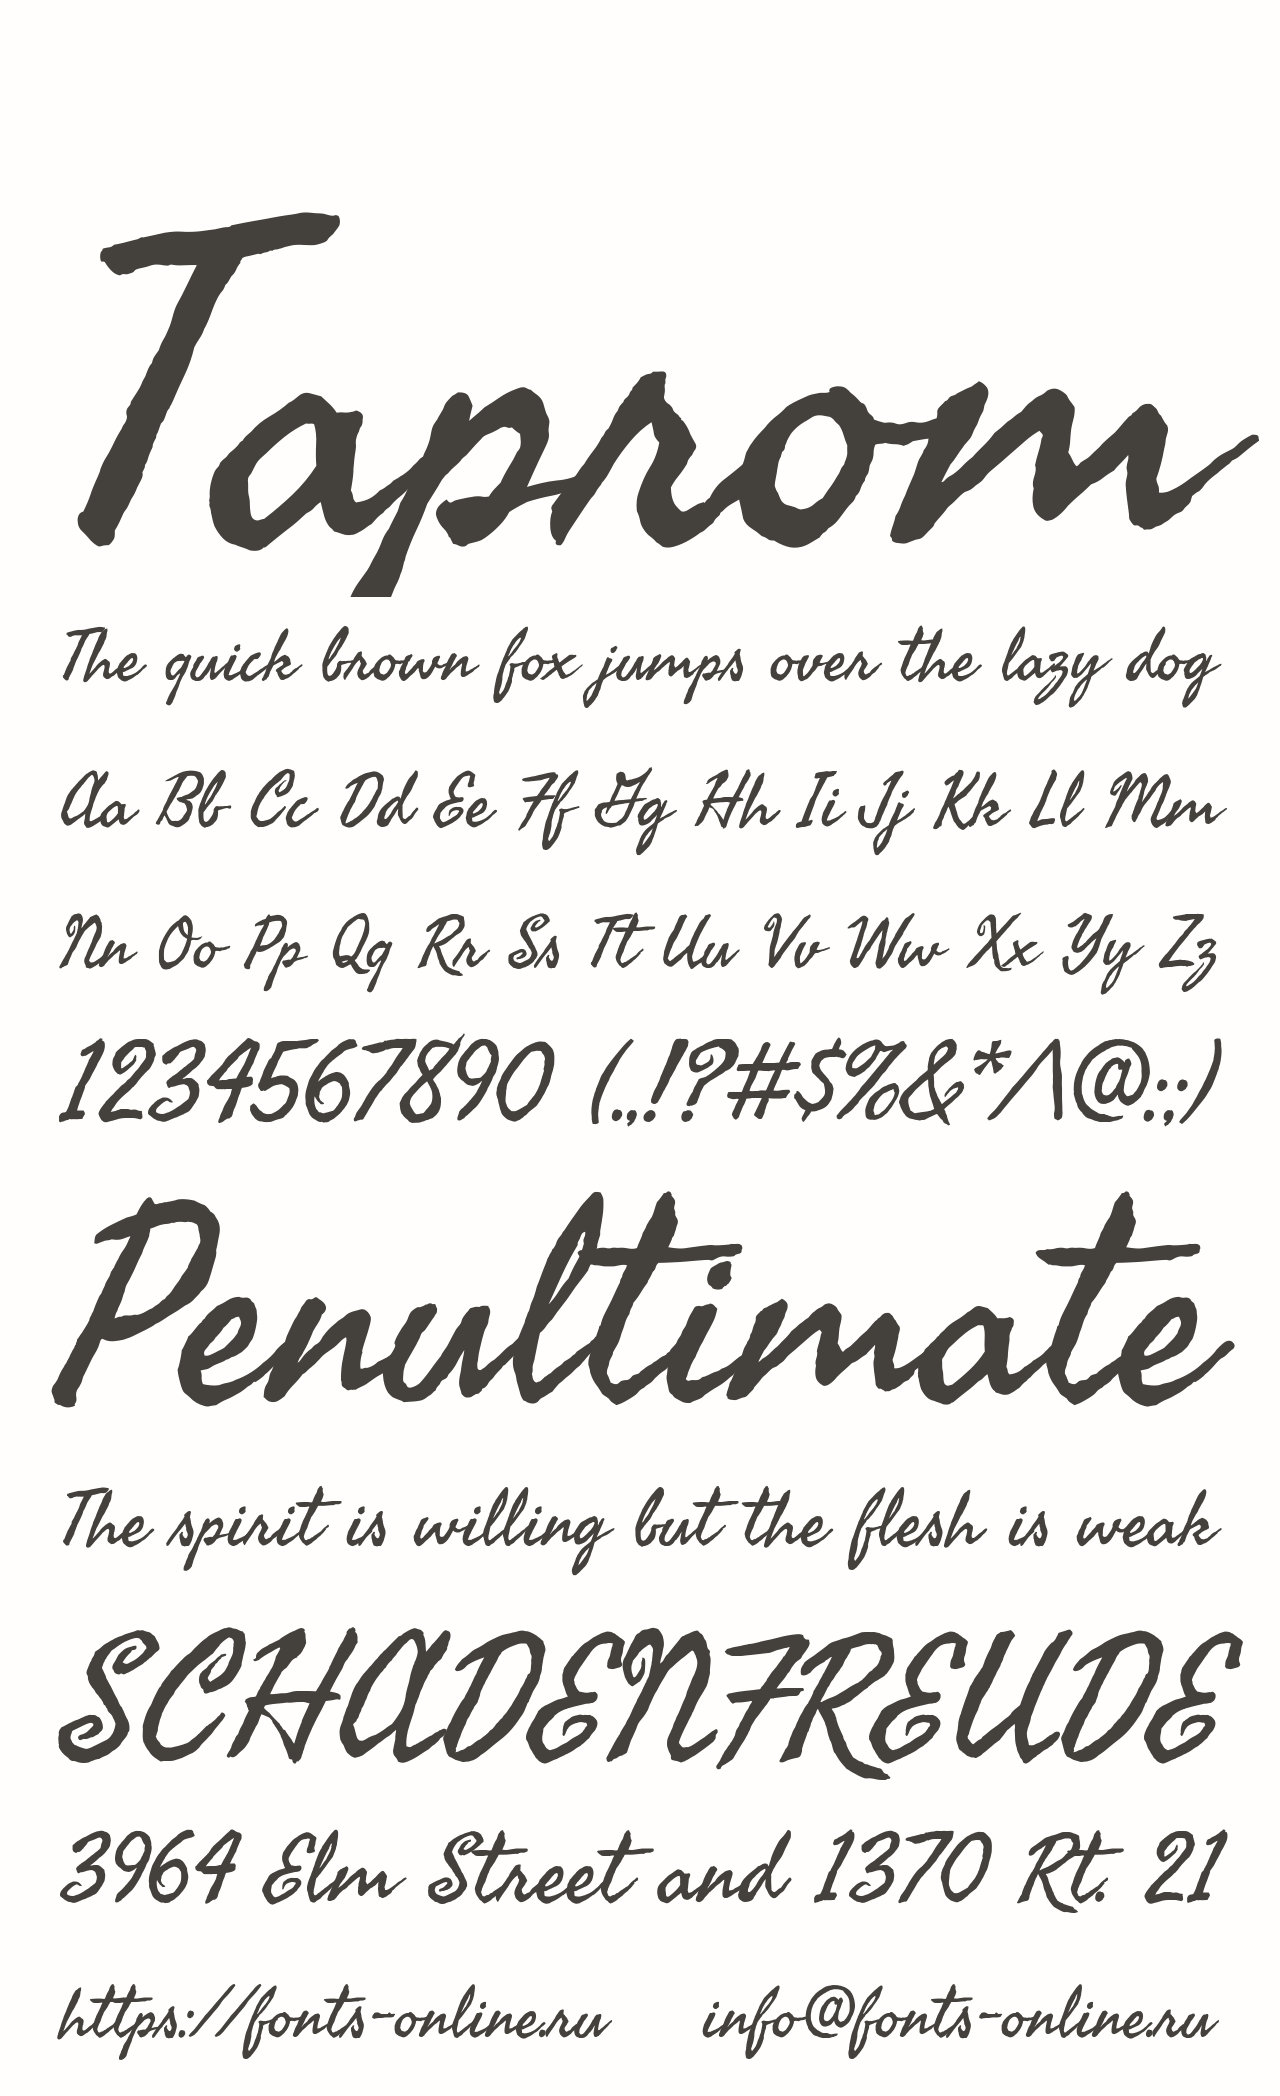 Taprom
The quick brown fox jumps over the lazy dog
Aa Bb Cc Dd Ee Ff Gg Hh Ii Jj Kk Ll Mm
Nn Oo Pp Qq Rr Ss Tt Uu Vv Ww Xx Yy Zz
1234567890 (.,!?#$%&*/\@:;)
Penultimate
The spirit is willing but the flesh is weak
SCHADENFREUDE
3964 Elm Street and 1370 Rt. 21
https://fonts-online.ru info@fonts-online.ru